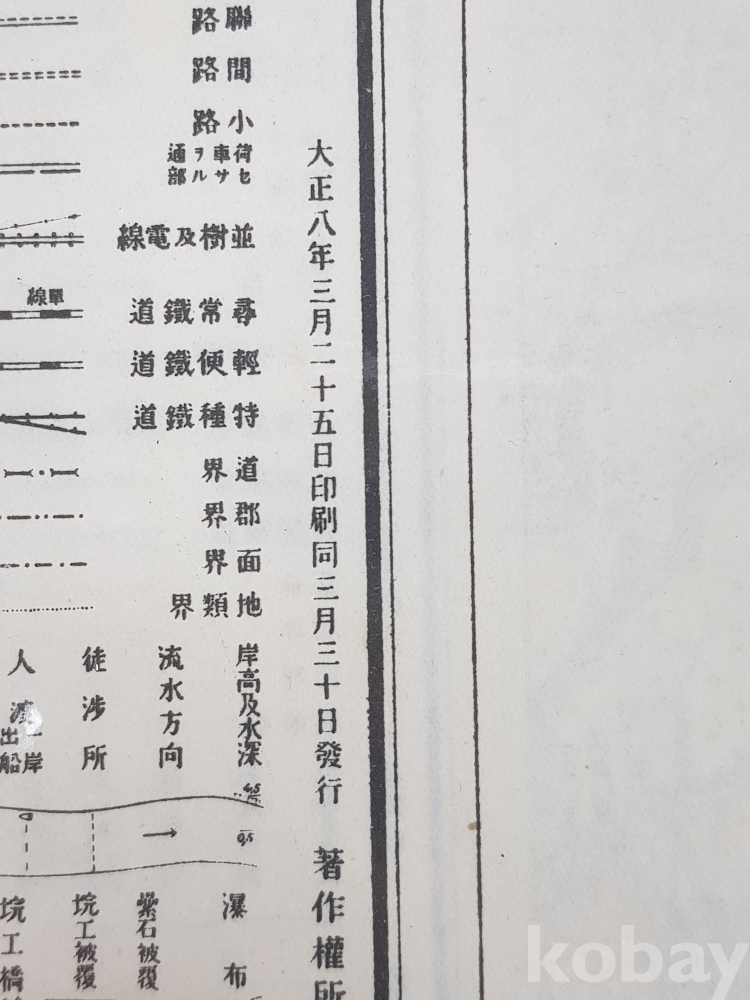 大正八年三月二十五日印刷同三月三十日發行
著作權所
聯路
間路
小路
荷車ヲ通
セサル部
並樹及電線
單線
尋常鐵道
輕便鐵道
特種鐵道
道界
郡界
面界
地類界
岸高及水深
流水方向
徒涉所
人渡
4.5
0.5
瀑布
石被覆
垸工被覆
垸工橋
kobay